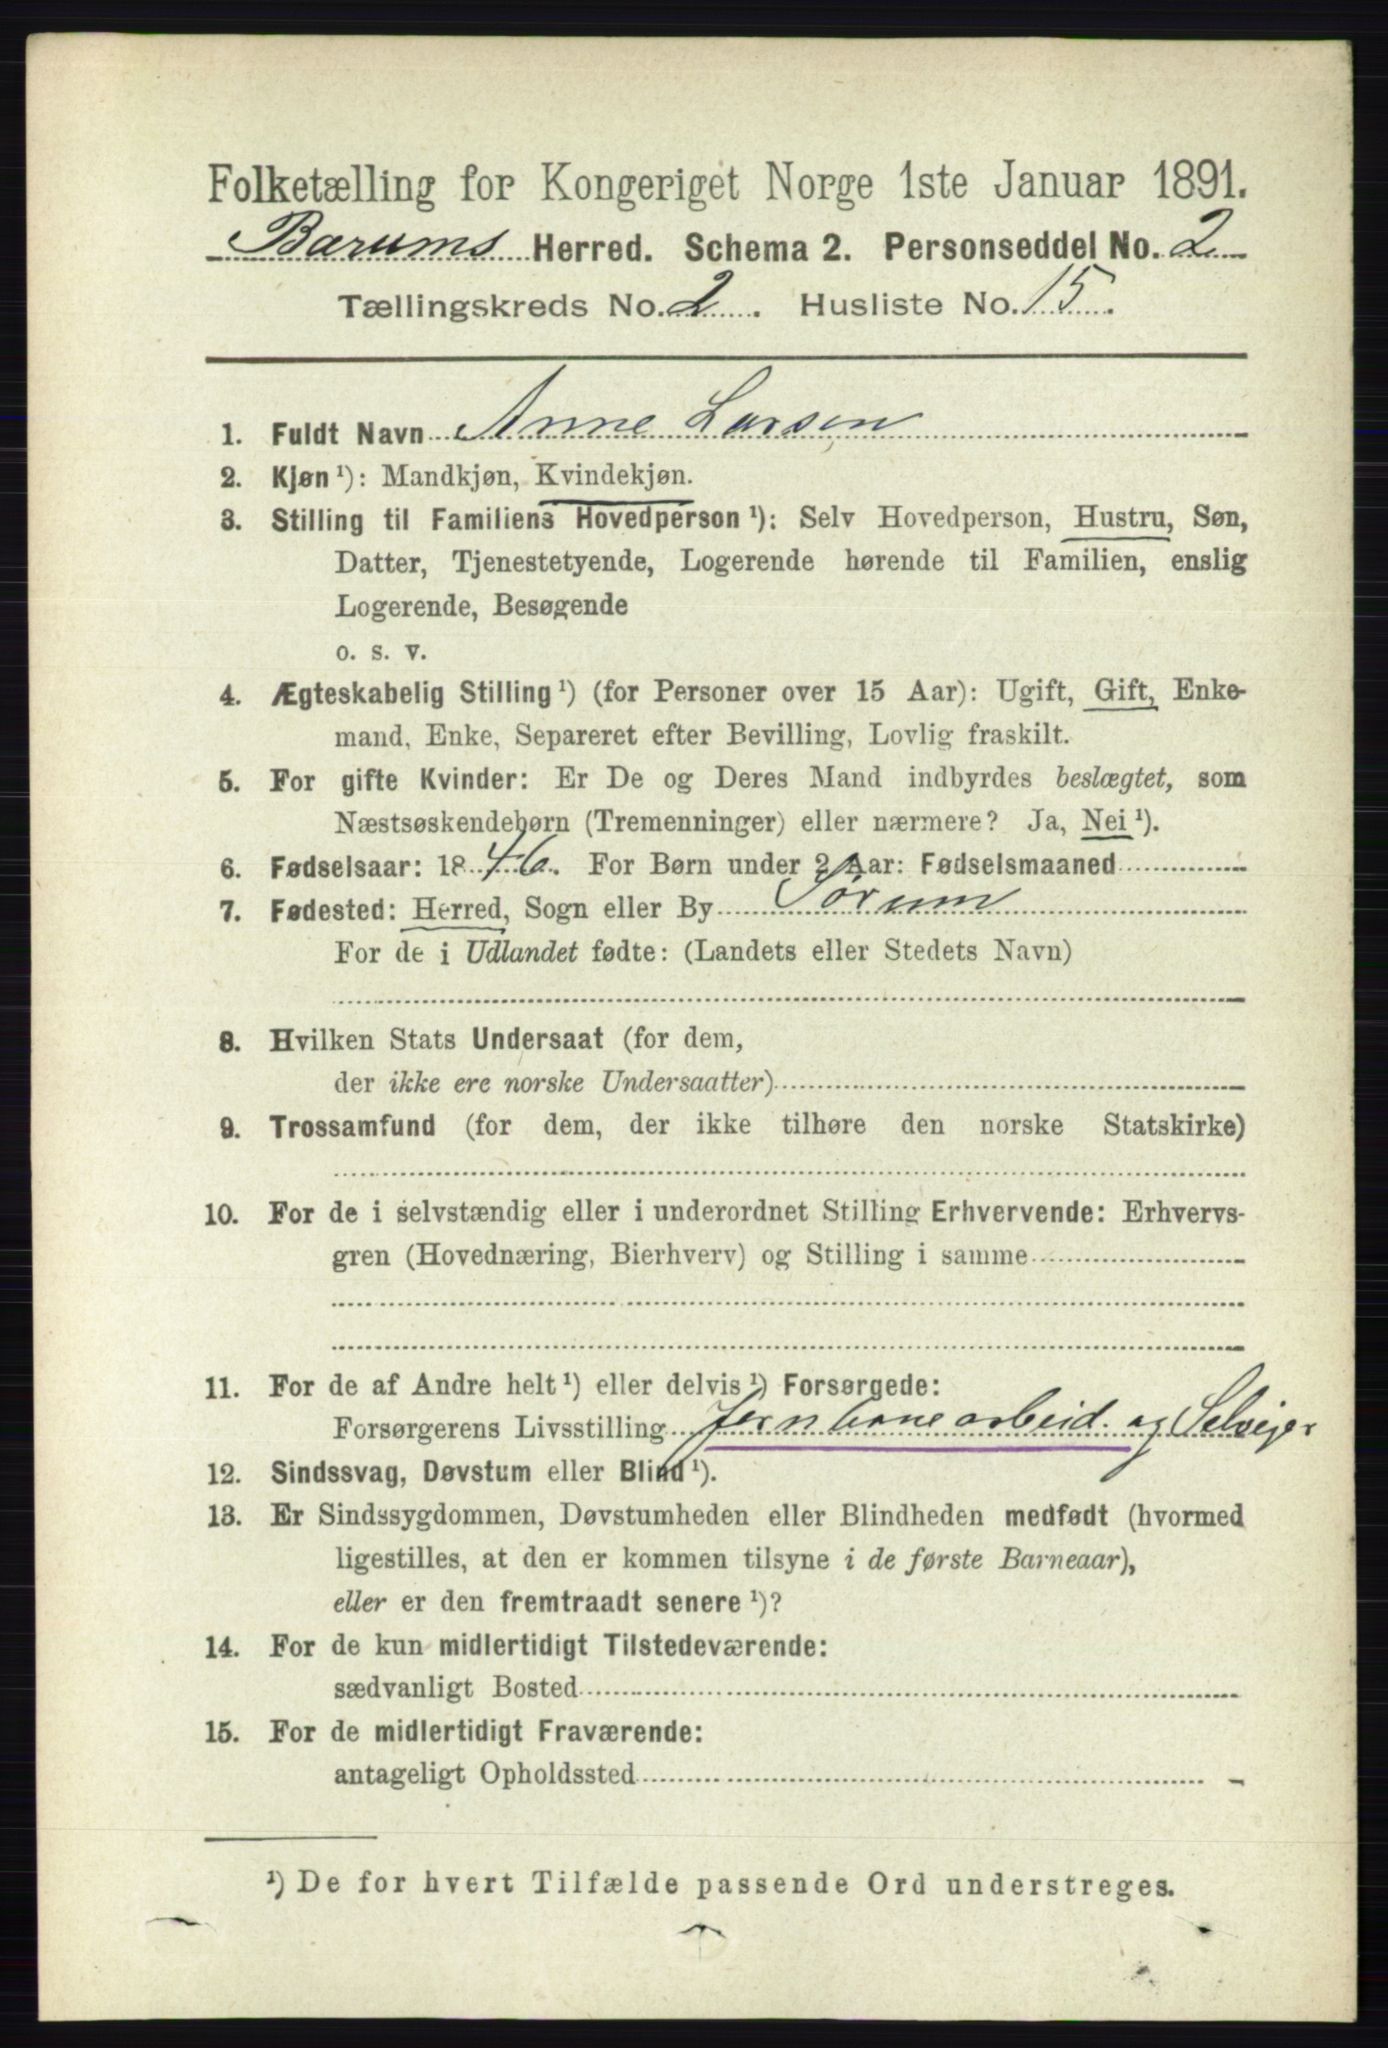 Folketælling for Kongeriget Norge 1ste Januar 1891.
Bærums Herred. Schema 2. Personseddel No. 2
Tællingskreds No. 2. Husliste No. 15.
1. Fuldt Navn Anne Larsen
2. Kjøn ¹): Mandkjøn, Kvindekjøn.
3. Stilling til Familiens Hovedperson ¹): Selv Hovedperson, Hustru, Søn,
Datter, Tjenestetyende, Logerende hørende til Familien, enslig
Logerende, Besøgende
o. s. v.
4. Ægteskabelig Stilling ¹) (for Personer over 15 Aar): Ugift, Gift, Enke-
mand, Enke, Separeret efter Bevilling, Lovlig fraskilt.
5. For gifte Kvinder: Er De og Deres Mand indbyrdes beslægtet, som
Næstsøskendebørn (Tremenninger) eller nærmere? Ja, Nei ¹).
6. Fødselsaar: 1846. For Børn under 2 Aar: Fødselsmaaned
7. Fødested: Herred, Sogn eller By Sørum
For de i Udlandet fødte: (Landets eller Stedets Navn)
8. Hvilken Stats Undersaat (for dem,
der ikke ere norske Undersaatter)
9. Trossamfund (for dem, der ikke tilhøre den norske Statskirke)
10. For de i selvstændig eller i underordnet Stilling Erhvervende: Erhvervs-
gren (Hovednæring, Bierhverv) og Stilling i samme
11. For de af Andre helt ¹) eller delvis ¹) Forsørgede:
Forsørgerens Livsstilling Jernbanearbeid. og Selvejer
12. Sindssvag, Døvstum eller Blind ¹).
13. Er Sindssygdommen, Døvstumheden eller Blindheden medfødt (hvormed
ligestilles, at den er kommen tilsyne i de første Barneaar),
eller er den fremtraadt senere ¹)?
14. For de kun midlertidigt Tilstedeværende:
sædvanligt Bosted
15. For de midlertidigt Fraværende:
antageligt Opholdssted
¹) De for hvert Tilfælde passende Ord understreges.